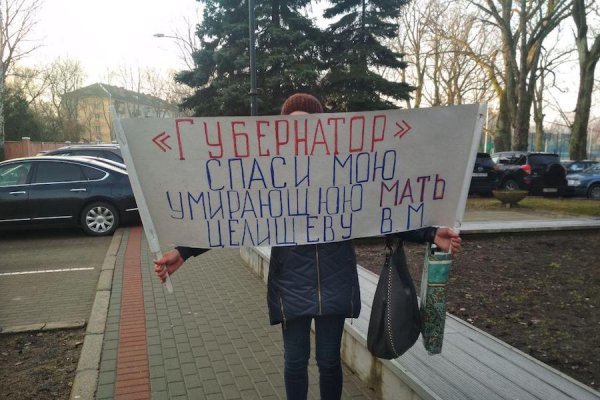 «ГУБЕРНАТОР»
СПАСИ МОЮ
УМИРАЮЩУЮ МАТЬ
ЦЕЛИЩЕВУ В.М